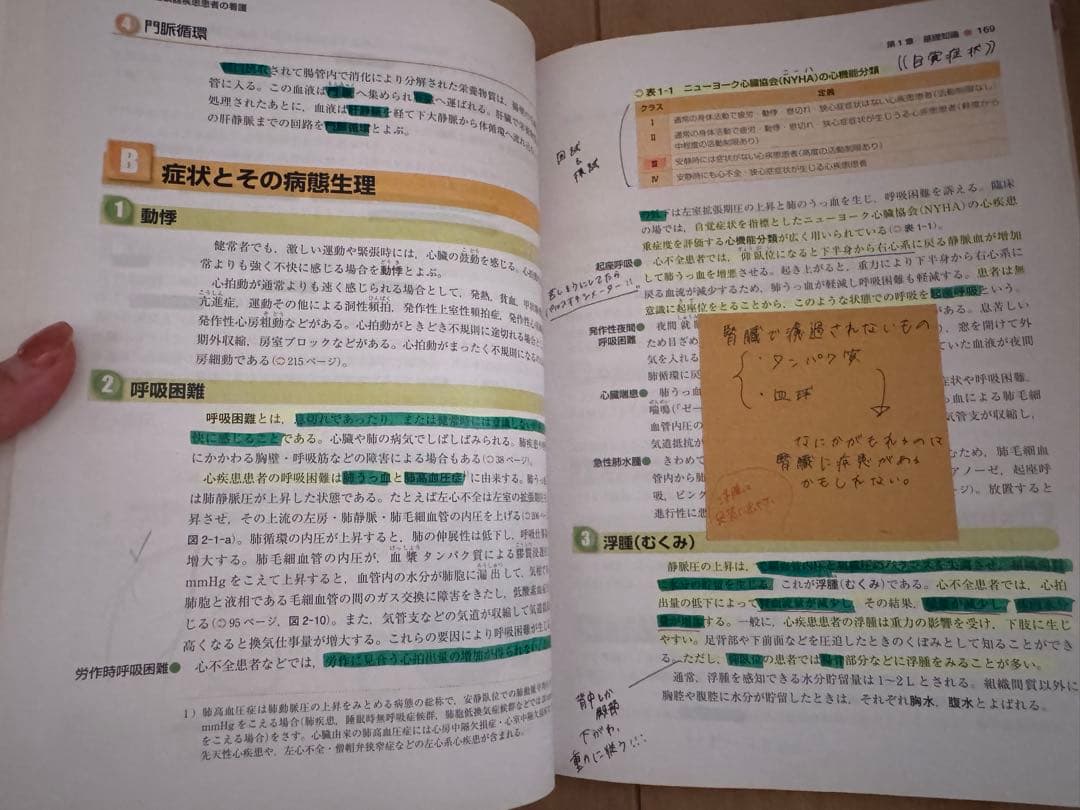 疾患患者の看護
4 門脈循環
されて腸管内で消化により分解された栄養物質は,
管に入る。この血液は門脈へ集められ へ運ばれる。肝臓で
処理されたあとに,血液は肝静脈を経て下大静脈から体循環へ
の肝静脈までの回路を門脈循環とよぶ。
B 症状とその病態生理
1 動悸
健常者でも,激しい運動や緊張時には,心臓の鼓動を感じる。
常よりも強く不快に感じる場合を動悸とよぶ。
心拍動が通常よりも速く感じられる場合として,発熱,貧血,
亢進症,運動その他による洞性頻拍,発作性上室性頻拍症,
発作性心房粗動などがある。心拍動がときどき不規則に途切れる場合
期外収縮,房室ブロックなどがある。心拍動がまったく不規則になるの
房細動である(215ページ)。
2 呼吸困難
呼吸困難とは,息切れであったり,または健常時には意識しない
快に感じることである。心臓や肺の病気でしばしばみられる。
にかかわる胸壁・呼吸筋などの障害による場合もある(38ページ)。
心疾患患者の呼吸困難は肺うっ血と肺高血圧症1)に由来する。
は肺静脈圧が上昇した状態である。たとえば左心不全は左室の拡張期
昇させ,その上流の左房・肺静脈・肺毛細血管の内圧を上げる(
図2-1-a)。肺循環の内圧が上昇すると,肺の伸展性は低下し,
増大する。肺毛細血管の内圧が,血漿タンパク質による膠質浸透圧
mmHgをこえて上昇すると,血管内の水分が肺胞に漏出して,
肺胞と液相である毛細血管の間のガス交換に障害をきたし,低酸素
じる(95ページ,図2-10)。また,気管支などの気道が収縮して
高くなると換気仕事量が増大する。これらの要因により呼吸困難が
労作時呼吸困難 心不全患者などでは,労作に見合う心拍出量の増加が得られない
1)肺高血圧症は肺動脈圧の上昇をみとめる病態の総称で,安静臥位での肺動脈
mmHgをこえる場合(肺疾患,睡眠時無呼吸症候群,肺胞低換気症候群などでは
をこえる場合)をさす。心臓由来の肺高血圧症には心房中隔欠損症・心室中隔欠損
先天性心疾患や,左心不全・僧帽弁狭窄症などの左心系心疾患が含まれる。
第1章 基礎知識 169
((自覚症状))
ニーハ
表1-1 ニューヨーク心臓協会(NYHA)の心機能分類
クラス 定義
I 通常の身体活動で疲労・動悸・息切れ・狭心症症状はない心疾患患者(活動制限なし)
II 通常の身体活動で疲労・動悸・息切れ・狭心症症状が生じうる心疾患患者(軽度から
中程度の活動制限あり)
III 安静時には症状がない心疾患患者(高度の活動制限あり)
IV 安静時にも心不全・狭心症症状が生じる心疾患患者
下は左室拡張期圧の上昇と肺のうっ血を生じ,呼吸困難を訴える。臨床
の場では,自覚症状を指標としたニューヨーク心臓協会(NYHA)の心疾患
重症度を評価する心機能分類が広く用いられている(表1-1)。
起座呼吸 心不全患者では,仰臥位になると下半身から右心系に戻る静脈血が増加
して肺うっ血を増悪させる。起き上がると,重力により下半身から右心系に
戻る血流が減少するため,肺うっ血が軽減し呼吸困難も軽減する。患者は無
意識に起座位をとることから,このような状態での呼吸を起座呼吸という。
発作性夜間
呼吸困難
夜間就
ため目ざめ
気を入れる
肺循環に戻
息苦しい
窓を開けて外
ていた血液が夜間
心臓喘息 肺うっ血
喘鳴(「ゼー
血管内圧の
気道抵抗が
症状や呼吸困難,
る肺毛細
気管支が収縮し,
急性肺水腫 きわめて
管内から肺
吸,ピンク
進行性に悪
ため,肺毛細
アノーゼ,起座呼
ページ)。放置すると
腎臓で濾過されないもの
・タンパク質
・血球
なにかがもれるのは
腎臓に疾患がある
かもしれない。
3 浮腫(むくみ)
静脈圧の上昇は,
水分の貯留を生じる。これが浮腫(むくみ)である。心不全患者では,心拍
出量の低下によって腎血流量が減少し,その結果,尿量が減少し,
が増加する。一般に,心疾患患者の浮腫は重力の影響を受け,下肢に生じ
やすい。足背部や下前面などを圧迫したときのくぼみとして知ることができ
る。ただし,仰臥位の患者では腰背部分などに浮腫をみることが多い。
通常,浮腫を感知できる水分貯留量は1〜2Lとされる。組織間質以外に
胸腔や腹腔に水分が貯留したときは,それぞれ胸水,腹水とよばれる。
背中しか
殿部
下がわ,
重力に従う!!!